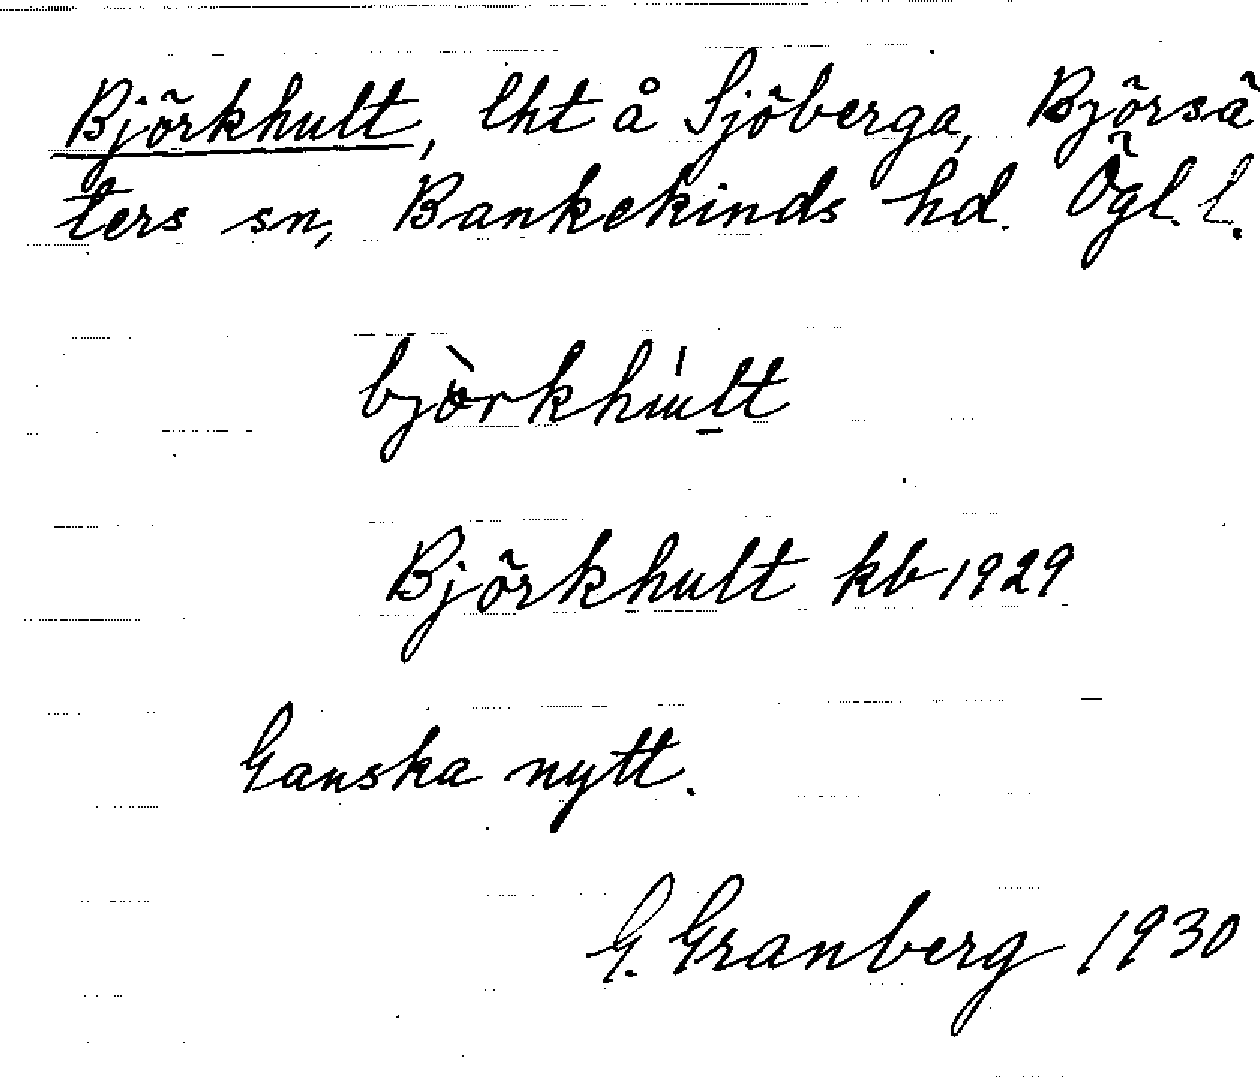 Björkhult, lht å Sjöberga, Björsä
ters sn, Bankekinds hd. Ögl. l.
bjòrkhúlt
Björkhult kb 1929
Ganska nytt.
G. Granberg 1930